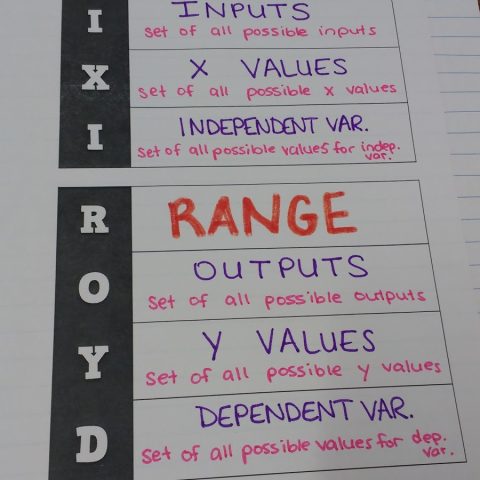 I INPUTS
set of all possible inputs
X X VALUES
set of all possible x values
I INDEPENDENT VAR.
set of all possible values for indep.
var.
R RANGE
O OUTPUTS
set of all possible outputs
Y Y VALUES
set of all possible y values
D DEPENDENT VAR.
set of all possible values for dep.
var.